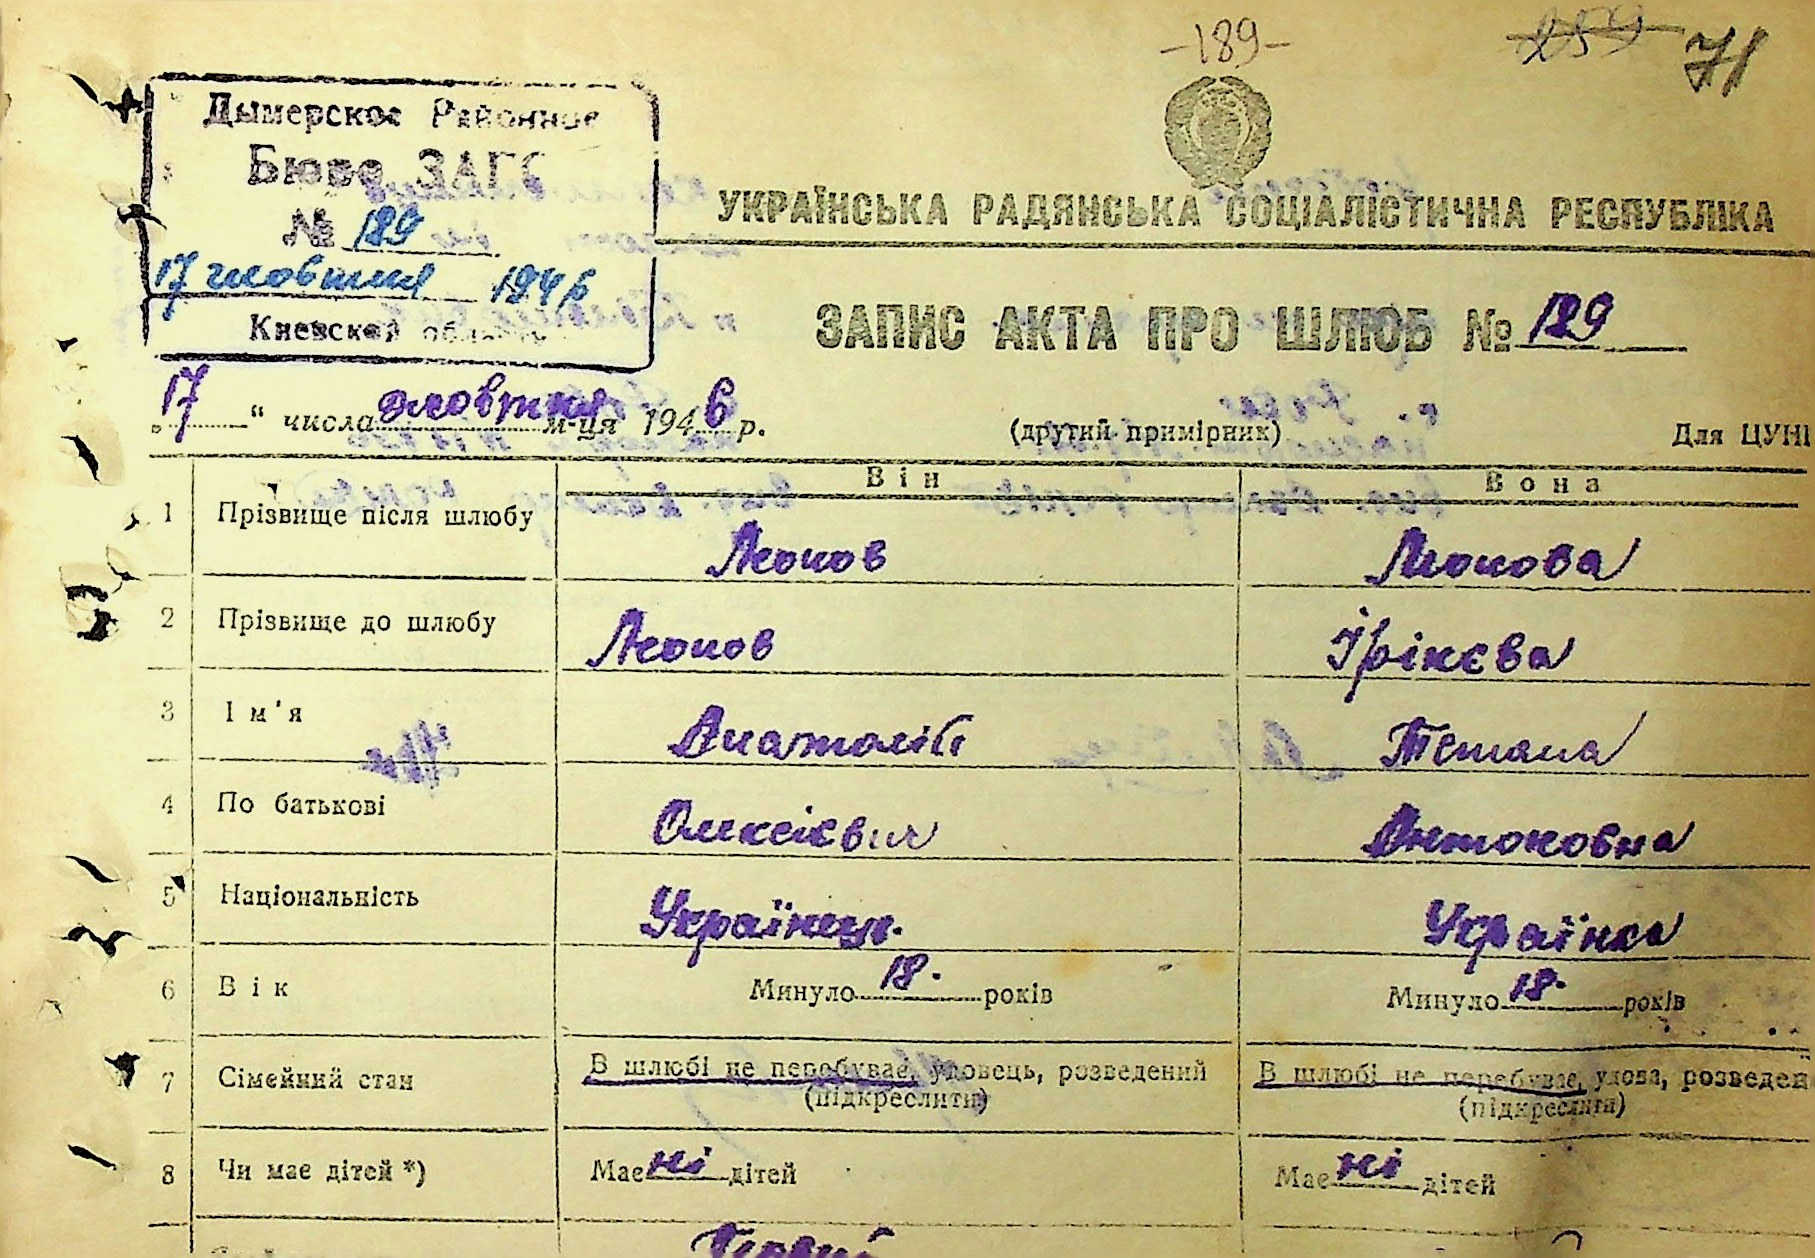 -189-
259 71
Дымерское Районное
Бюро ЗАГС
№ 189
17 жовтня 1946
Киевской
УКРАЇНСЬКА РАДЯНСЬКА СОЦІАЛІСТИЧНА РЕСПУБЛІКА
ЗАПИС АКТА ПРО ШЛЮБ № 189
„17“ числа жовтня м-ця 1946 р. (другий примірник) Для ЦУНГ
Він Вона
1 Прізвище після шлюбу Леонов Леонова
2 Прізвище до шлюбу Леонов
3 Ім'я Анатолій Тетяна
4 По батькові Олексієвич Антоновна
5 Національність Українець. Українка
6 Вік Минуло 18. років Минуло 18. років
7 Сімейний стан В шлюбі не перебуває, удовець, розведений В шлюбі не перебуває, удова, розведен
(підкреслити) (підкреслити)
8 Чи має дітей *) Має ні дітей Має ні дітей